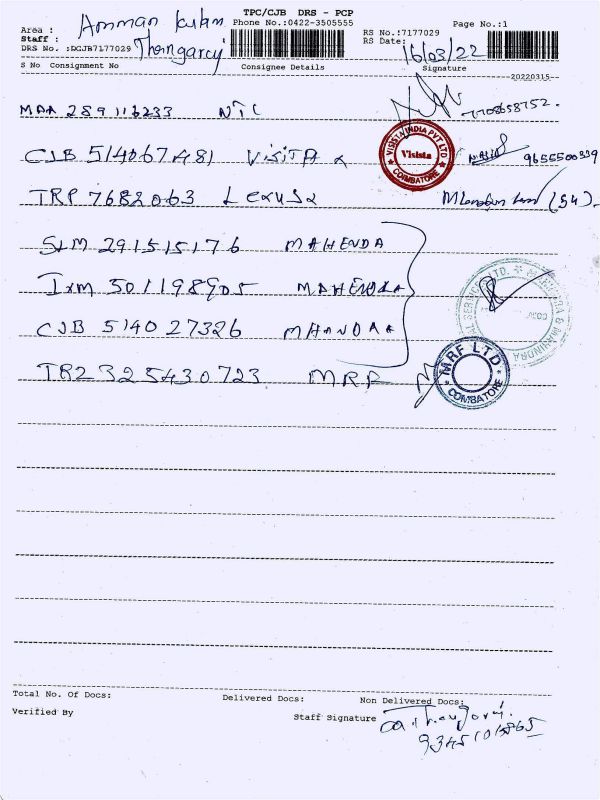 TPC/CJB DRS - PCP
Area : Amman kulam Phone No.:0422-3505555 RS No.:7177029 Page No.:1
Staff : RS Date: 16/03/22
DRS No. :DCJB7177029
S No Consignment No Consignee Details Signature
20220315
MAA 289116233 NTC
CJB 514067481 VISITA VISISTA INDIA PVT LTD Visista COIMBATORE 9655500339
TRP 7682063
SLM 291515176 MAHENDA
IXM 301198905 MAHENDRA
CJB 514027326
TRZ 325430723 MRF MRF LTD COIMBATORE
Total No. Of Docs: Delivered Docs: Non Delivered Docs:
Verified By Staff Signature